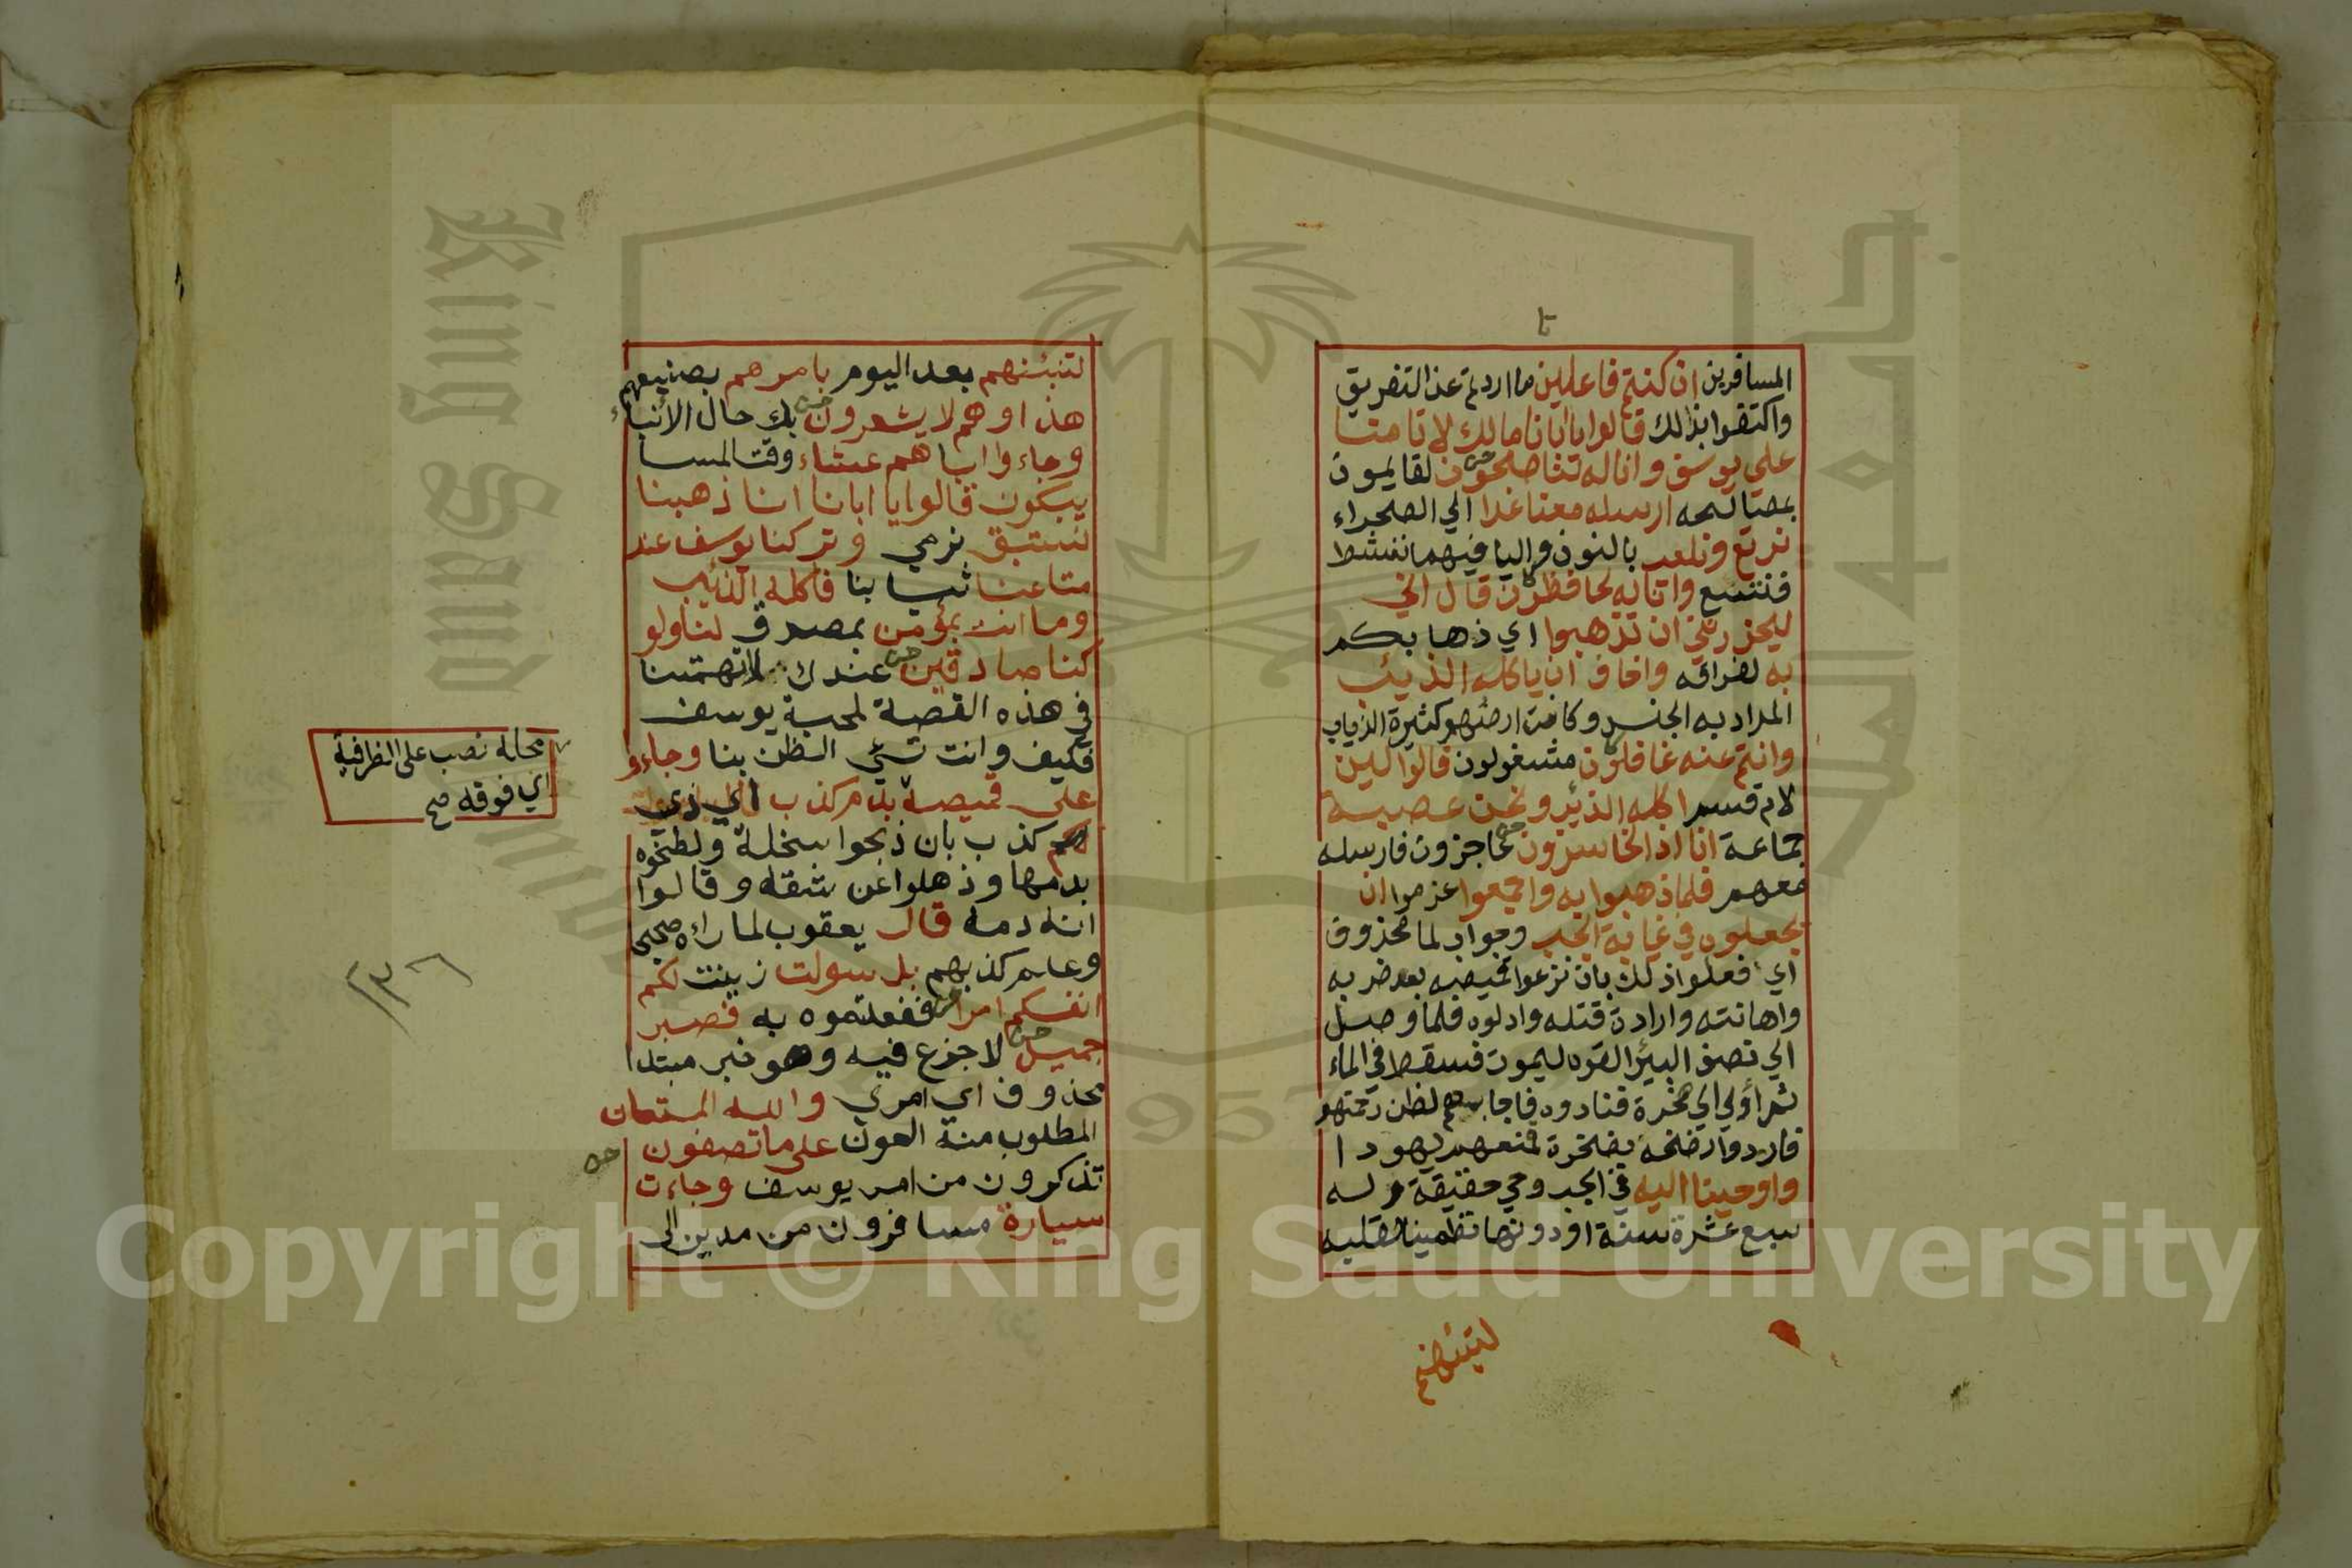 المسافرين ان كنتم فاعلين ما اردتم عن التفريق
واكتفوا بذلك قالوا يا ابانا مالك لا تامنا
على يوسف وانا له لناصحون لقايمون
بمصالحه ارسله معنا غدا الي الصحراء
نرتع ونلعب بالنون واليا فيهما ننشط
فنتسع وانا له لحافظون قال اني
ليحزنني ان تذهبوا اي ذهابكم
به لفراقه واخاف ان ياكله الذيب
المراد به الجنس وكانت ارضهم كثيرة الذياب
وانتم عنه غافلون مشغولون قالوا لين
لام قسم اكله الذئب ونحن عصبة
جماعة انا اذا لخاسرون عاجزون فارسله
معهم فلما ذهبوا به واجمعوا عزموا ان
يجعلوه في غيابة الجب وجواب لما محذوف
اي فعلوا ذلك بان نزعوا قميصه بعد ضربه
واهانته وارادة قتله وادلوه فلما وصل
الي نصف البئر القوه ليموت فسقط في الماء
ثم أوي الي صخرة فنادوه فاجابهم لظن رحمتهم
فارادوا رضخه بصخرة فمنعهم يهودا
واوحينا اليه في الجب وحي حقيقة وله
سبع عشرة سنة او دونها تطمينا لقلبه
لتنبئنهم
لتنبئنهم بعد اليوم بامرهم بصنيعهم
هذا وهم لا يشعرون بك حال الأنباء
وجاءوا اباهم عشاء وقت المسا
يبكون قالوا يا ابانا انا ذهبنا
نستبق نرمي وتركنا يوسف عند
متاعنا ثيابنا فاكله الذئب
وما انت بمؤمن بمصدق لنا ولو
كنا صادقين عندك لاتهمتنا
في هذه القصة لمحبة يوسف
فكيف وانت تسئ الظن بنا وجاءو
على قميصه بدم كذب اي ذي
كذب بان ذبحوا سخلة ولطخوه
بدمها وذهلوا عن شقه وقالوا
انه دمه قال يعقوب لما راه صحيحا
وعلم كذبهم بل سولت زينت لكم
انفسكم امرا ففعلتموه به فصبر
جميل لا جزع فيه وهو خبر مبتدا
محذوف اي امري والله المستعان
المطلوب منه العون على ما تصفون
تذكرون من امر يوسف وجاءت
سيارة مسافرون من مدين الى
محله نصب على الظرفية
اي فوقه صح
King Saud University
جامعة الملك سعود
1957
Copyright © King Saud University